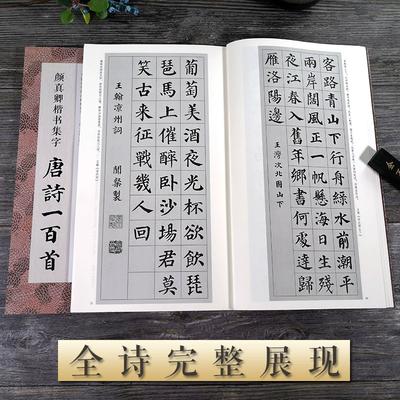 颜真卿楷书集字
唐詩一百首
客路青山下行舟綠水前潮平
兩岸闊風正一帆懸海日生殘
夜江春入舊年鄉書何處達歸
雁洛陽邊
王灣次北固山下
葡萄美酒夜光杯欲飲琵
琶馬上催醉卧沙場君莫
笑古來征戰幾人回
王翰凉州詞
全诗完整展现